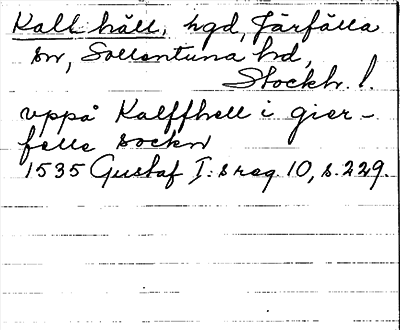 Kall häll, hgd, Järfälla
sn, Sollentuna hd,
Stockh. l.
vppå Kalffhell i gier-
felle sockn
1535 Gustaf I:s reg 10, s. 229.